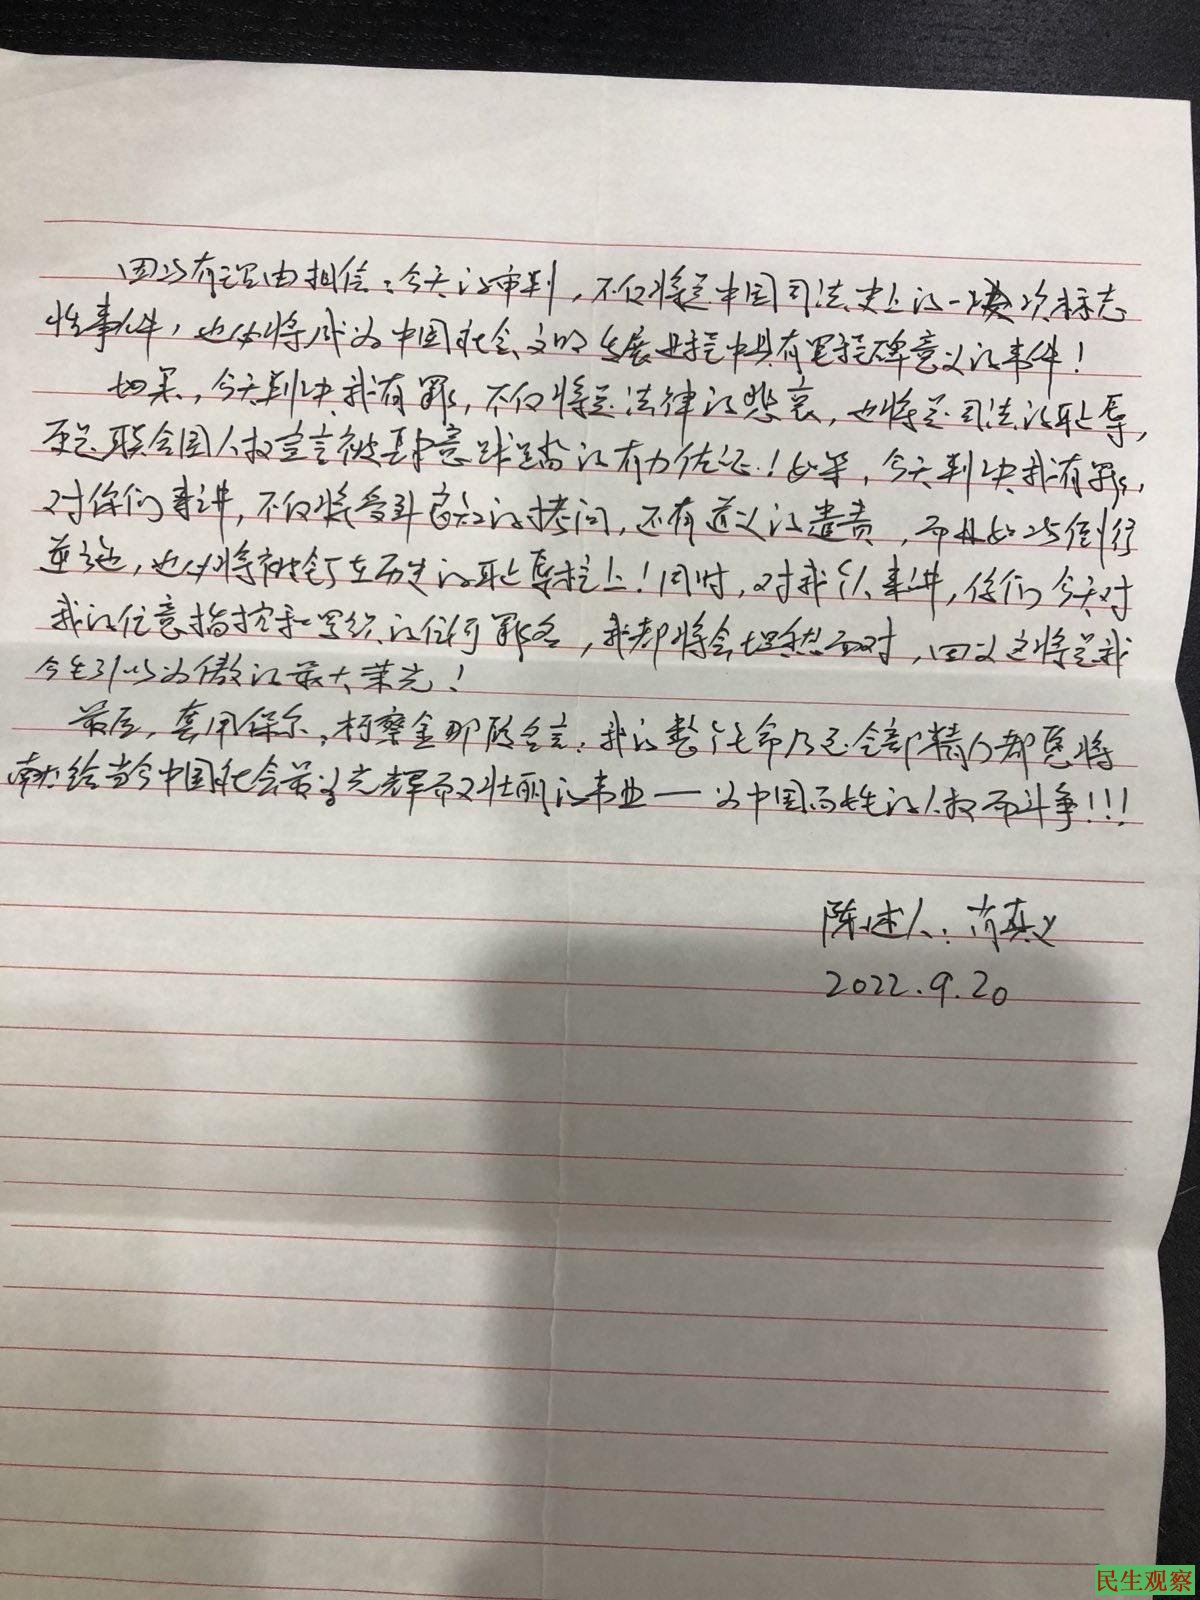 因此有理由相信：今天的审判，不仅将是中国司法史上的一次标志
性事件，也必将成为中国社会文明发展进程中具有里程碑意义的事件！
如果，今天判决我有罪，不仅将是法律的悲哀，也将是司法的耻辱，
更是联合国人权宣言被肆意践踏的有力佐证！如果，今天判决我有罪，
对你们来讲，不仅将受到良知的拷问，还有道义的谴责，而且如此倒行
逆施，也必将被钉在历史的耻辱柱上！同时，对我个人来讲，你们今天对
我的任意指控和罗织的任何罪名，我都将会坦然面对，因为这将是我
今生引以为傲的最大荣光！
最后，套用保尔．柯察金那段名言：我的整个生命乃至全部精力都愿将
献给当今中国社会最为光辉而又壮丽的事业——为中国百姓的人权而斗争！！！
陈述人：肖真义
2022.9.20
民生观察